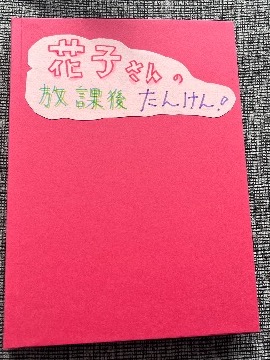 花子さんの
放課後たんけん!